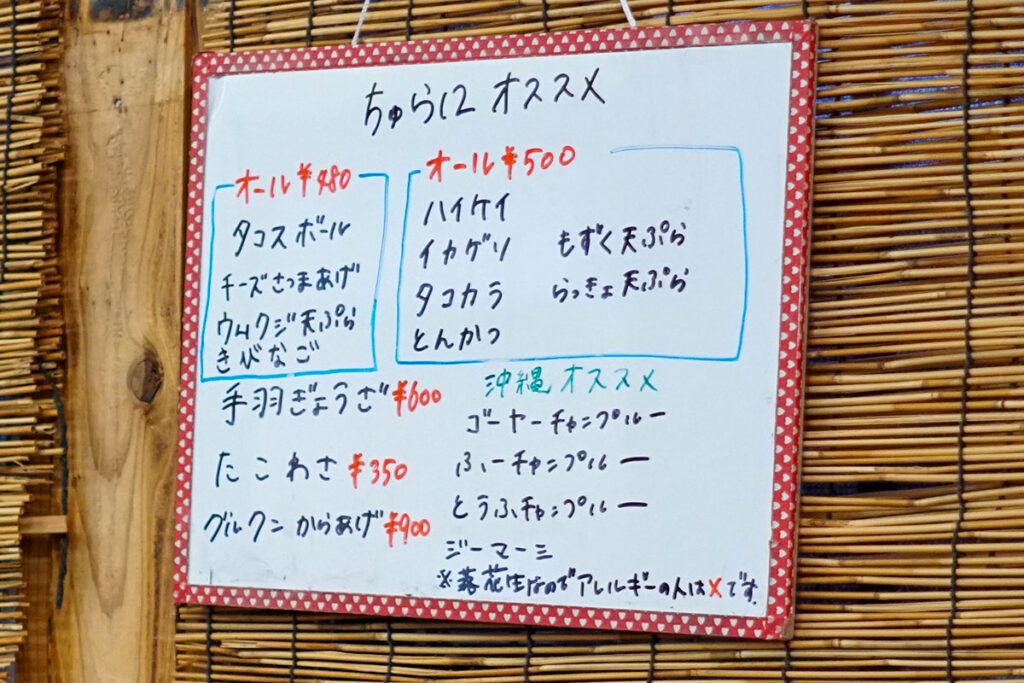 ちゅらに オススメ
オール ¥480
タコスボール
チーズさつまあげ
ウムクジ天ぷら
きびなご
オール ¥500
ハイケイ
イカゲソ
タコカラ
とんかつ
もずく天ぷら
らっきょ天ぷら
手羽ぎょうざ ¥600
たこわさ ¥350
グルクンからあげ ¥900
沖縄オススメ
ゴーヤーチャンプルー
ふーチャンプルー
とうふチャンプルー
ジーマーミ
※落花生なのでアレルギーの人は×です。